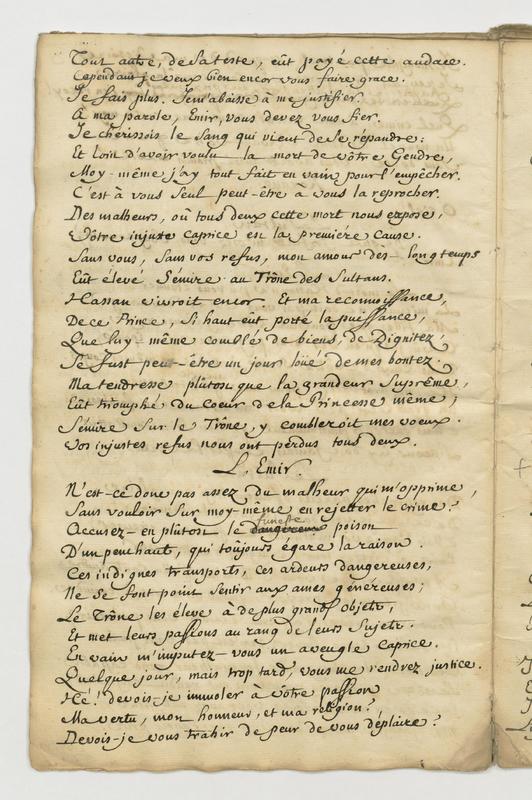 Tout autre, de sa teste, eût payé cette audace.
Cependant je veux bien encor vous faire grace.
Je fais plus. Je m'abaisse à me justifier.
A ma parole, Emir, vous devez vous fier.
Je chérissois le sang qui vient de se répandre:
Et loin d'avoir voulu la mort de vôtre Gendre,
Moy-même j'ay tout fait en vain pour l'empêcher.
C'est à vous seul peut-être à vous la reprocher.
Des malheurs, où tous deux cette mort nous expose,
Vôtre injuste caprice est la premiére cause.
Sans vous, sans vos refus, mon amour dès-longtemps
Eût élevé Sémire au Trône des Sultans.
Hassan vivroit encor. Et ma reconnoissance,
De ce Prince, si haut eût porté la puissance,
Que luy-même comblé de biens, de Dignitez,
Se fust peut-être un jour loüé de mes bontez.
Ma tendresse plûtost que la grandeur suprême,
Eût triomphé du coeur de la Princesse même;
Sémire sur le Trône, y combleroit mes voeux.
Vos injustes refus nous ont perdus tous deux.
L'Emir.
N'est-ce donc pas assez du malheur qui m'opprime,
Sans vouloir sur moy-même en rejetter le crime?
funeste
Accusez-en plûtost le dangereux poison
D'un penchant, qui toûjours égare la raison.
Ces indignes transports, ces ardeurs dangereuses,
Ne se font point sentir aux ames généreuses;
Le Trône les éleve à de plus grands objets,
Et met leurs passions au rang de leurs Sujets.
En vain m'imputez-vous un aveugle caprice.
Quelque jour, mais trop tard, vous me rendrez justice.
Hé! devois-je immoler à vôtre passion
Ma vertu, mon honneur, et ma religion?
Devois-je vous trahir de peur de vous déplaire?